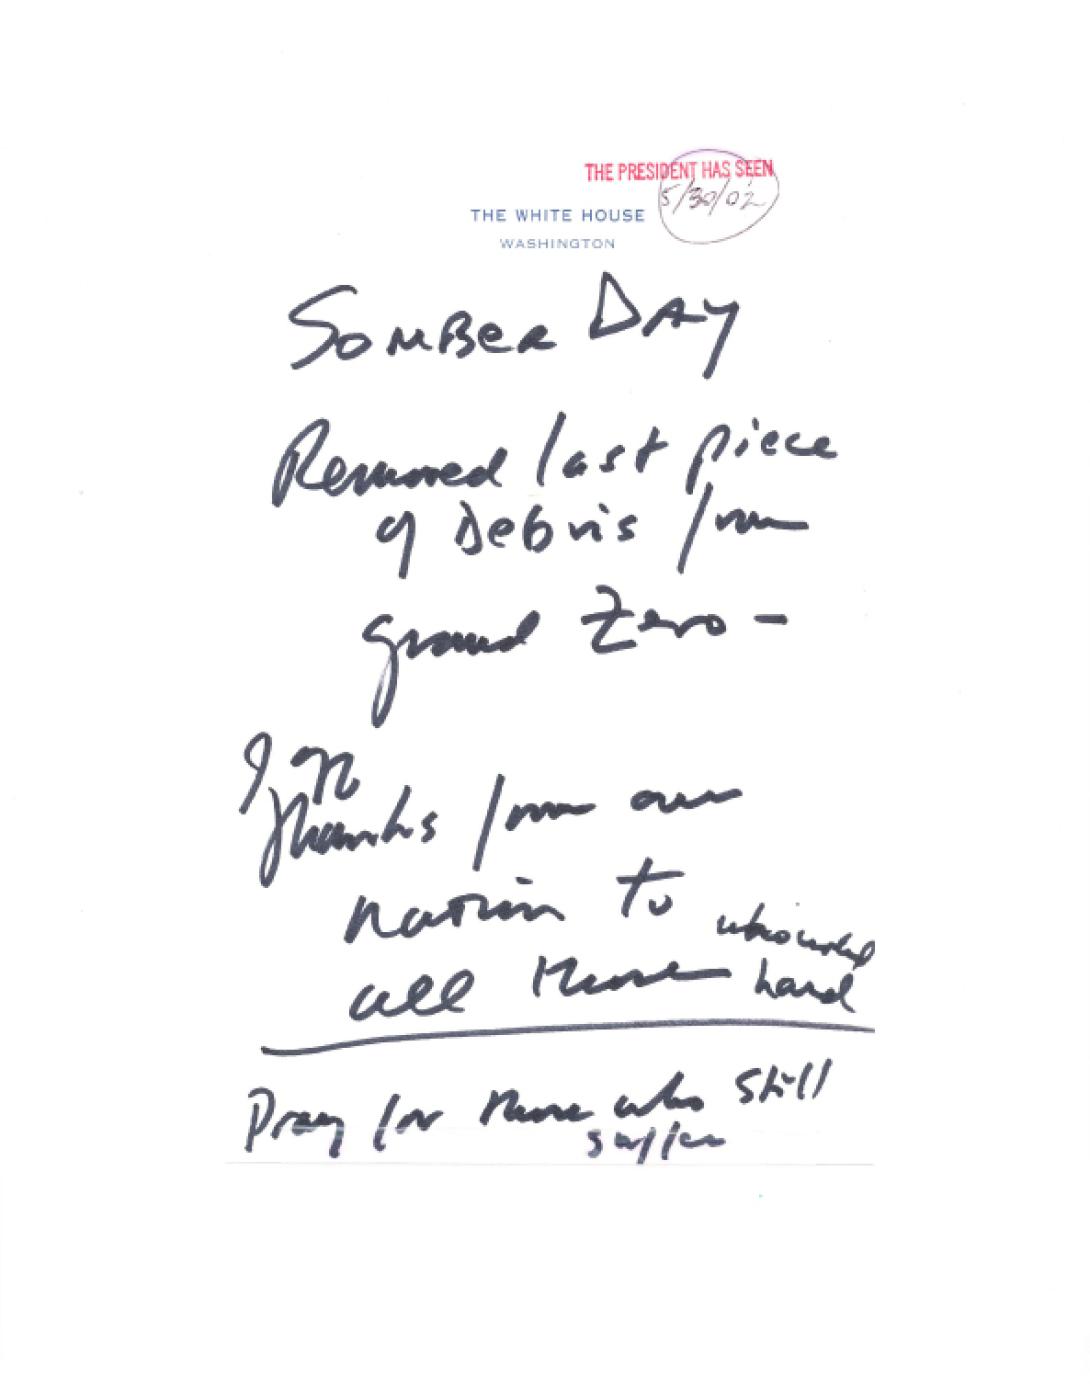 THE PRESIDENT HAS SEEN
5/30/02
THE WHITE HOUSE
WASHINGTON
Somber Day
Removed last piece
of Debris from
ground Zero -
I
Thanks from our
nation to
all those who worked
hard
Pray for those who still
suffer